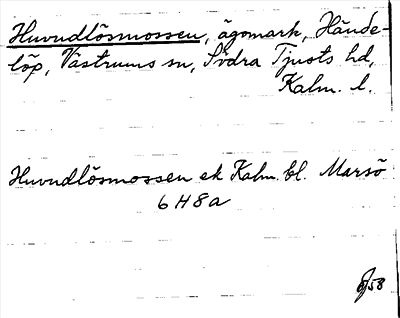 Huvudlösmossen, ägomark, Hände-
löp, Västrums sn, Södra Tjusts hd,
Kalm. l.
Huvudlösmossen ek Kalm. bl. Marsö
6 H 8 a
58